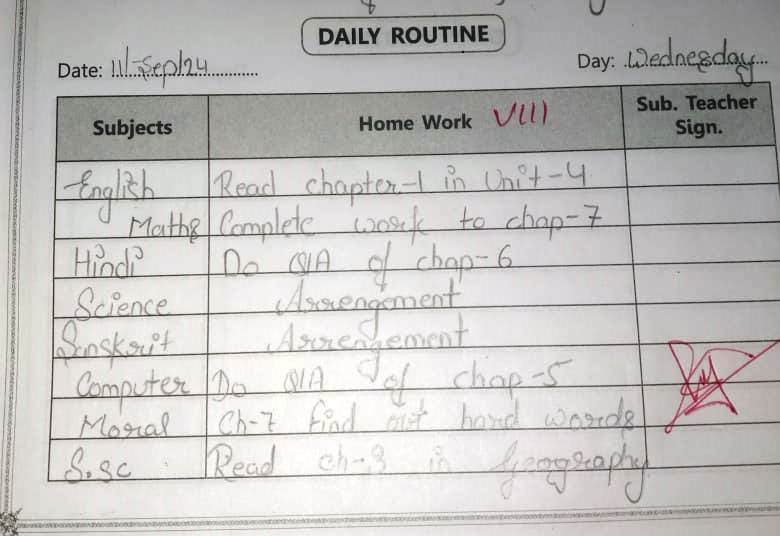 DAILY ROUTINE
Date: 11/Sep/24 Day: Wednesday
Subjects Home Work VIII Sub. Teacher Sign.
English Read chapter-1 in Unit-4
Maths Complete work to chap-7
Hindi Do Q/A of chap-6
Science Arrengement
Sanskrit Arrengement
Computer Do Q/A of chap-5
Moral Ch-7 find out hard words
S.sc Read ch-3 in Geography